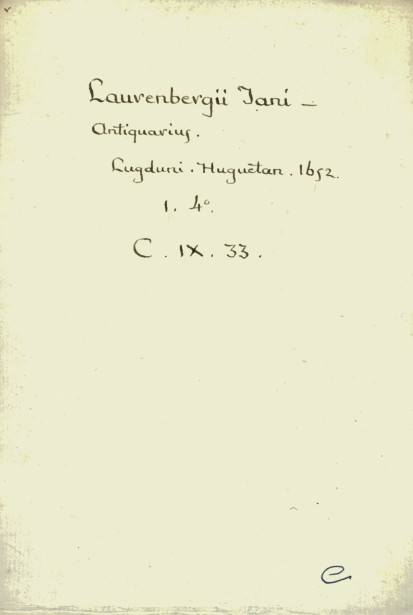 Laurenbergii Jani —
Antiquarius.
Lugduni. Huguetan. 1652.
1. 4°.
C. IX. 33.
e